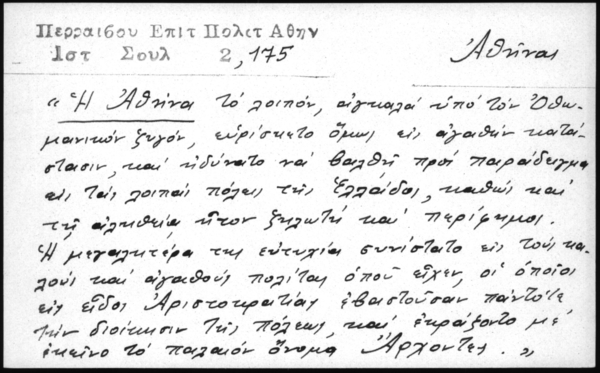 Περραιβου Επιτ Πολιτ Αθην
Ιστ Σουλ 2, 175
Ἀθῆναι
« Ἡ Ἀθῆνα τὸ λοιπόν, ἀγκαλὰ ὑπὸ τὸν Ὀθω-
μανικὸν ζυγόν, εὑρίσκετο ὅμως εἰς ἀγαθὴν κατά-
στασιν, καὶ ἠδύνατο νὰ βαλθῇ πρὸς παράδειγμα
εἰς τὰς λοιπὰς πόλεις τῆς Ἑλλάδος, καθὼς καὶ
τῇ ἀληθείᾳ ἦτον ζηλωτὴ καὶ περίφημος.
Ἡ μεγαλητέρα της εὐτυχία συνίστατο εἰς τοὺς κα-
λοὺς καὶ ἀγαθοὺς πολίτας ὁποῦ εἶχεν, οἱ ὁποῖοι
εἰς εἶδος Ἀριστοκρατίας ἐβαστοῦσαν πάντοτε
τὴν διοίκησιν τῆς πόλεως, καὶ ἐκράζοντο μὲ
ἐκεῖνο τὸ παλαιὸν ὄνομα Ἄρχοντες. »